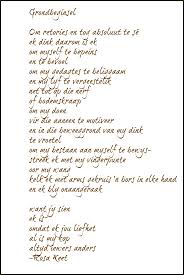 Grondbeginsel
Om retories en tog absoluut te sê
ek dink daarom is ek
om myself te bepeins
en te bevoel
om my gedagtes te beliggaam
en my lyf te vergeestelik
net tot op die nerf
of bodemskraap
om my dome
vir die anneen te motiveer
en in die beweeggrond van my dink
te vroetel
om my bestaan aan myself te bewys–
streek ek met my vingerpunte
oor my wang
kolk ek met arms gekruis 'n bors in elke hand
en ek bly onaangeraak
want jy sien
ek is
omdat ek jou liefhet
al is my kop
altyd tewers anders
-Rosa Keet